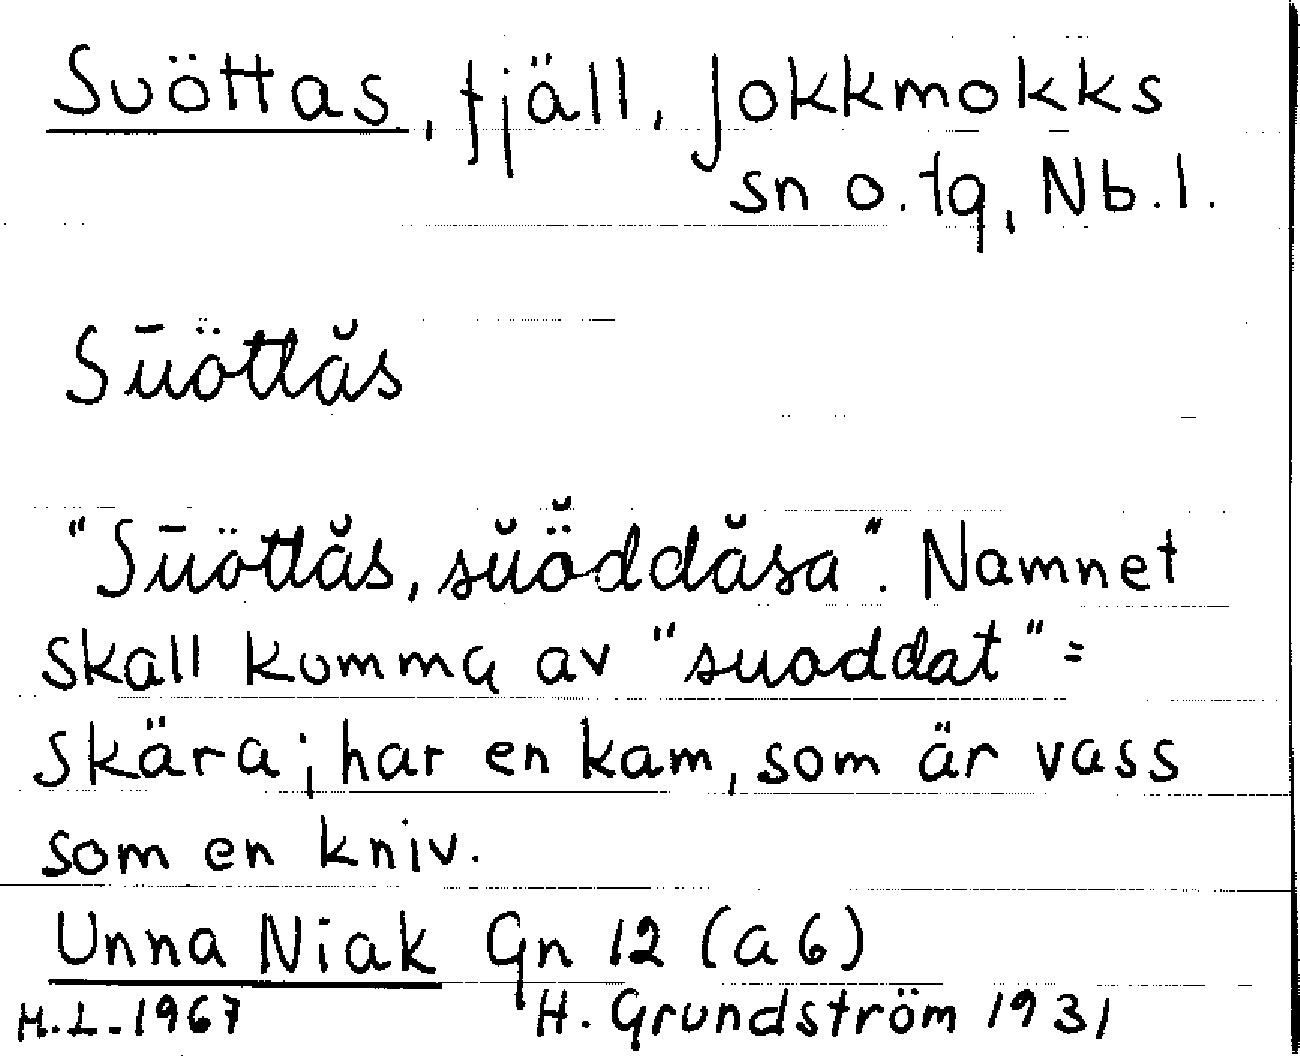 Suöttas, fjäll, Jokkmokks
sn o. tg, Nb. l.
Sūöttăs
"Sūöttăs, sŭö̆ddăsa". Namnet
skall komma av "suoddat" =
skära; har en kam, som är vass
som en kniv.
Unna Niak Gn 12 (a 6)
H.L. 1967 H. Grundström 1931